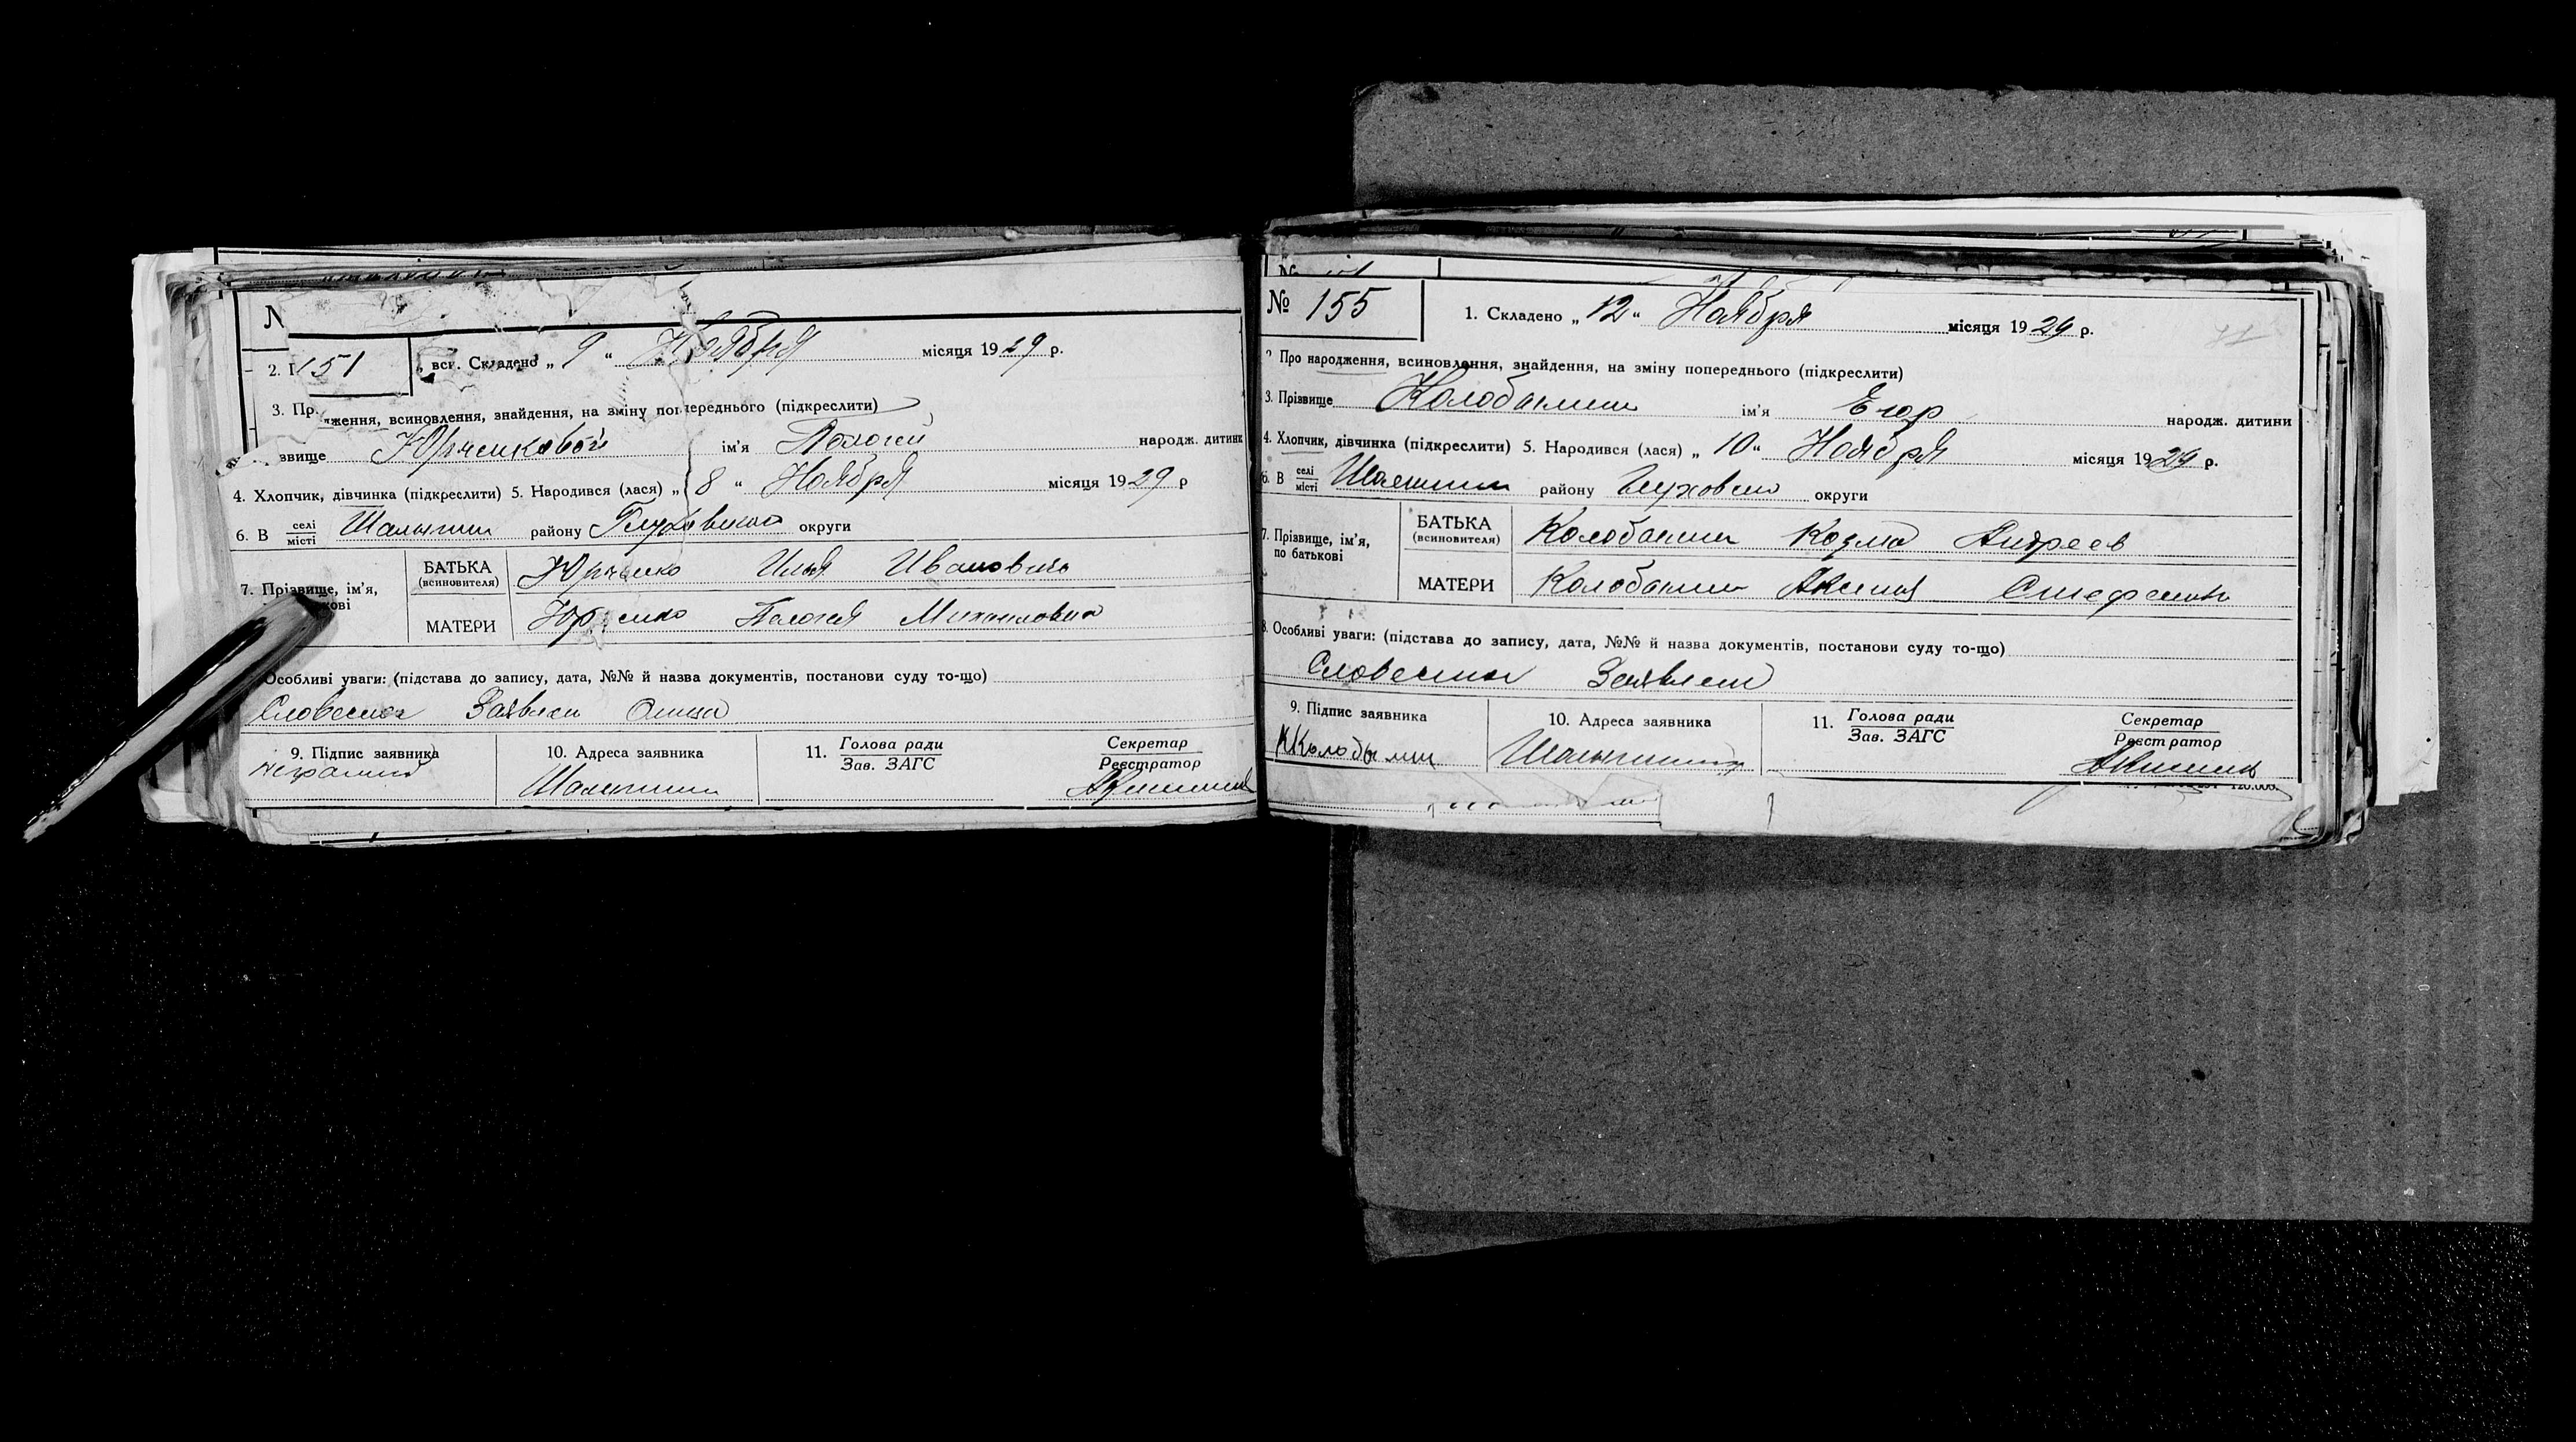 N
151
2. Г
всг. Складено „ 9 “ Ноября місяця 1929 р.
3. Пр
дження, всиновлення, знайдення, на зміну попереднього (підкреслити)
звище Юрченковой ім'я Пологеи народж. дитини
4. Хлопчик, дівчинка (підкреслити) 5. Народився (лася) „ 8 “ Ноября місяця 1929 р
6. В селі місті Шалыгини району Глуховско округи
7. Прізвище, ім'я,
кові
БАТЬКА (всиновителя) Юрченко Илья Иванович
МАТЕРИ Юрченко Пологея Михаиловна
Особливі уваги: (підстава до запису, дата, №№ й назва документів, постанови суду то-що)
Словесное Заявлен Отца
9. Підпис заявника
10. Адреса заявника
11. Голова ради
Зав. ЗАГС
Секретар
Реєстратор
неграмот
Шалыгини
№ 155
1. Складено „ 12 “ Ноября місяця 1929 р.
Про народження, всиновлення, знайдення, на зміну попереднього (підкреслити)
3. Прізвище Колобынин ім'я Егор народж. дитини
4. Хлопчик, дівчинка (підкреслити) 5. Народився (лася) „ 10 “ Ноября місяця 1929 р.
6. В селі місті Шалыгин району Глуховско округи
7. Прізвище, ім'я,
по батькові
БАТЬКА (всиновителя) Колобынин Козма Андреев
МАТЕРИ Колобынин Аксиня Стефанин
8. Особливі уваги: (підстава до запису, дата, №№ й назва документів, постанови суду то-що)
Словесное Заявлен
9. Підпис заявника
10. Адреса заявника
11. Голова ради
Зав. ЗАГС
Секретар
Реєстратор
120.000.